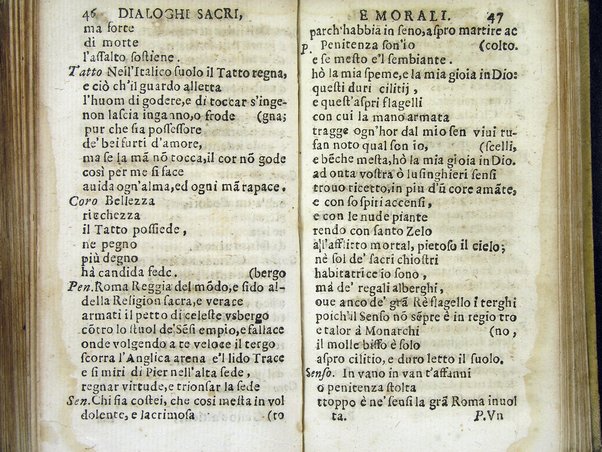 46 DIALOGHI SACRI,
ma forte
di morte
l'assalto sostiene.
Tatto Nell'Italico suolo il Tatto regna,
e ciò ch'il guardo alletta
l'huom di godere, e di toccar s'inge-
non lascia inganno, o frode (gna;
pur che sia possessore
de' bei furti d'amore,
ma se la mã nõ tocca, il cor nõ gode
così per me si face
auida ogn'alma, ed ogni mã rapace.
Coro Bellezza
ricchezza
il Tatto possiede,
ne pegno
più degno
hà candida fede. (bergo
Pen. Roma Reggia del mõdo, e fido al-
della Religion sacra, e verace
armati il petto di celeste vsbergo
cõtro lo stuol de' Sẽsi empio, e fallace
onde volgendo a te veloce il tergo
scorra l'Anglica arena e'l lido Trace
e si miri di Pier nell'alta sede,
regnar virtude, e trionfar la fede
Sen. Chi sia costei, che così mesta in vol
dolente, e lacrimosa (to
E MORALI. 47
parch'habbia in seno, aspro martire ac
P. Penitenza son'io (colto.
e se mesto è'l sembiante.
hò la mia speme, e la mia gioia in Dio:
questi duri cilitij,
e quest'aspri flagelli
con cui la mano armata
tragge ogn'hor dal mio sen viui ru-
san noto qual son io, (scelli,
e bẽche mesta, hò la mia gioia in Dio.
ad onta vostra ò lusinghieri sensi
trouo ricetto, in più d'ũ core amãte,
e con sospiri accensi,
e con le nude piante
rendo con santo Zelo
all'afflitto mortal, pietoso il cielo;
nè sol de' sacri chiostri
habitatrice io sono,
mà de' regali alberghi,
oue anco de' grã Rè flagello i terghi
poich'il Senso nõ sẽpre è in regio tro
e talor à Monarchi (no,
il molle bisso è solo
aspro cilitio, e duro letto il suolo.
Senso. In vano in van t'affanni
o penitenza stolta
troppo è ne' sensi la grã Roma inuol
ta. P.Vn